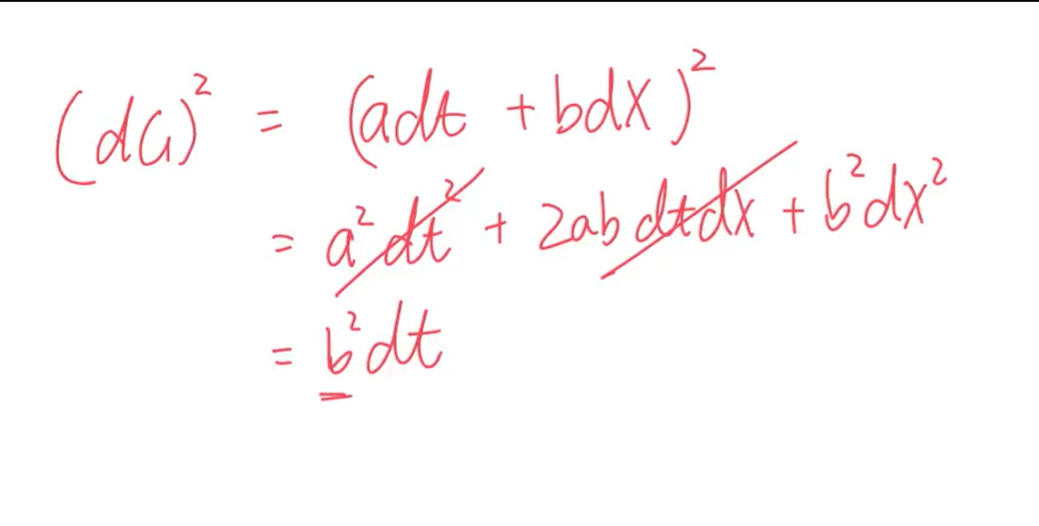 (dG)² = (adt + bdX)²
= a²dt² + 2abdtdx + b²dx²
= b²dt